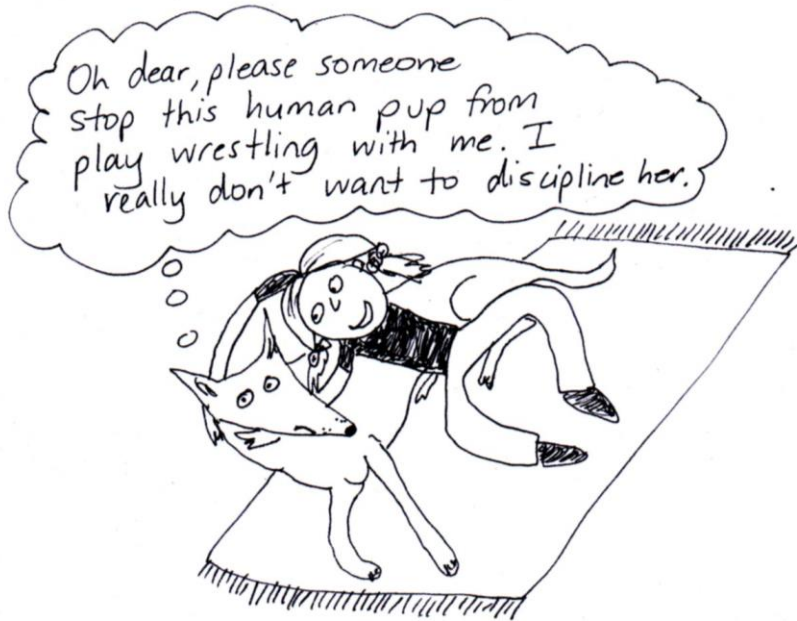 Oh dear, please someone
stop this human pup from
play wrestling with me. I
really don't want to discipline her.